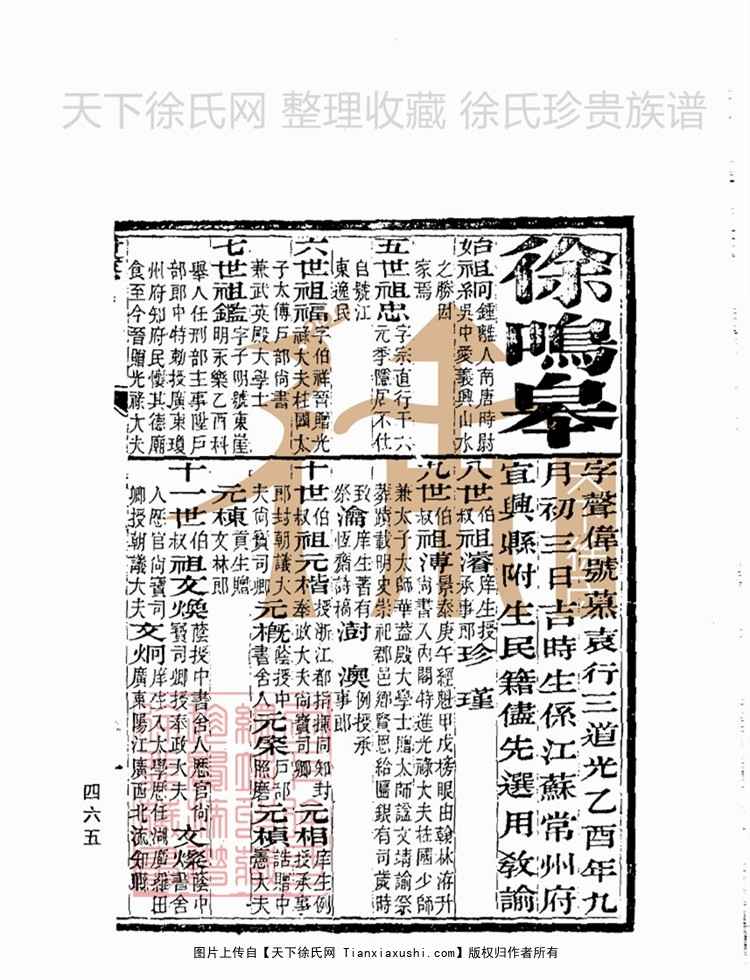 天下徐氏网 整理收藏 徐氏珍贵族谱
徐鳴皋
字聲偉號慕袁行三道光乙酉年九
月初三日吉時生係江蘇常州府
宜興縣附生民籍儘先選用敎諭
始祖絅鍾離人南唐時尉
吳中愛義興山水
之勝因
家焉
五世祖忠字宗直行千六
元季隱居不仕
自號江
東逸民
六世祖福字伯祥晉贈光
祿大夫柱國太
子太傅戶部尚書
兼武英殿大學士
七世祖鑑字子明號東崖
明永樂乙酉科
舉人任刑部主事陞戶
部郎中特勅授廣東瓊
州府知府民懷其德廟
食至今晉贈光祿大夫
八世伯叔祖濬庠生授承事郎 珍 瑾
九世伯叔祖溥景泰庚午經魁甲戌榜眼由翰林洊升
尚書入內閣特進光祿大夫柱國少師
兼太子太師華蓋殿大學士贈太師諡文靖諭祭
葬蹟載明史崇祀郡邑鄉賢恩給匾銀有司歲時
致祭 瀹庠生著有恆齋詩稿 澍 澳例授承事郎
十世伯叔祖元楷授浙江都指揮同知封
奉政大夫尚寶司卿 元相庠生例授承事
郎封朝議大夫尚寶司卿 元概蔭授中書舍人 元棨戶部照磨 元楨誥贈中憲大夫
元棟貢生贈文林郎
十一世伯叔祖文煥蔭授中書舍人歷官尚
寶司卿授奉政大夫 文燦蔭中書舍
人歷官尚寶司卿授朝議大夫 文炯庠生入太學歷任湖廣羅田
廣東陽江廣西北流知縣
四六五
图片上传自【天下徐氏网 Tianxiaxushi.com】版权归作者所有